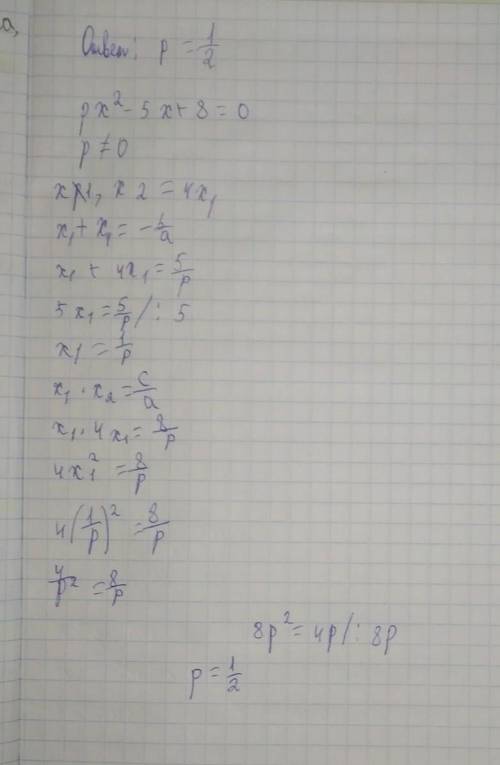 а,
Ответ: p = 1/2
px² - 5x + 8 = 0
p ≠ 0
x1, x2 = 4x₁
x₁ + x₁ = -b/a
x₁ + 4x₁ = 5/p
5x₁ = 5/p /: 5
x₁ = 1/p
x₁ · x₂ = c/a
x₁ · 4x₁ = 8/p
4x₁² = 8/p
4(1/p)² = 8/p
4/p² = 8/p
8p² = 4p /: 8p
p = 1/2